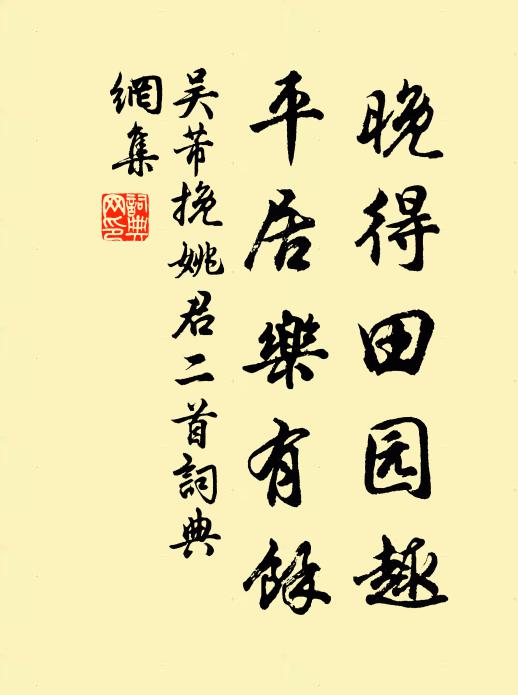 晚得田园趣
平居樂有餘
吴芾挽姚君二首詞典
網集
詞典
网印